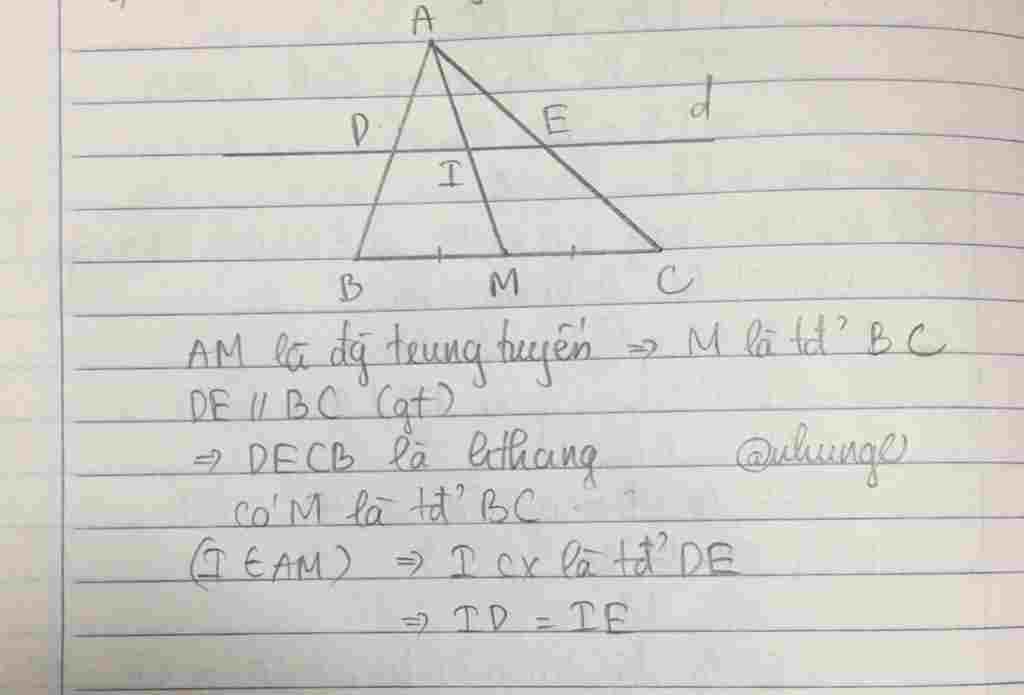 A
D
E
d
I
B
M
C
AM là đg̃ trung tuyến ⇒ M là tđ' BC
DE // BC (gt)
⇒ DECB là hthang
có M là tđ' BC
(I ∈ AM) ⇒ I cx là tđ' DE
⇒ ID = IE